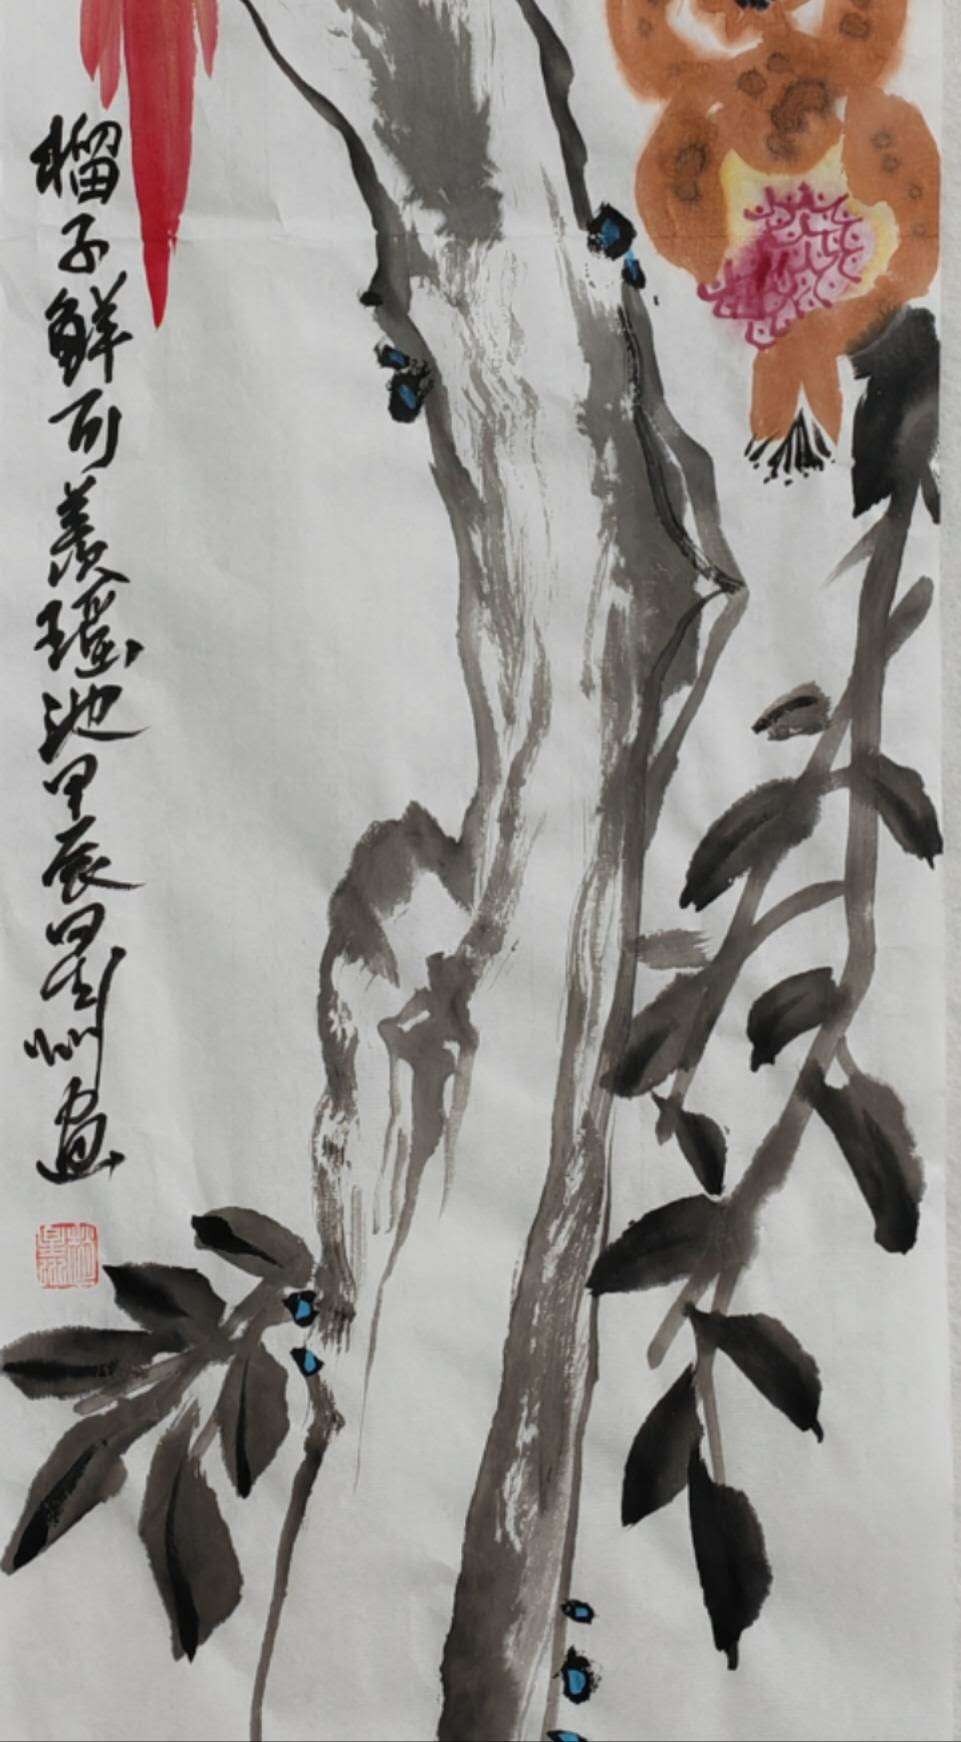 榴子鲜可羡瑶池甲辰四画